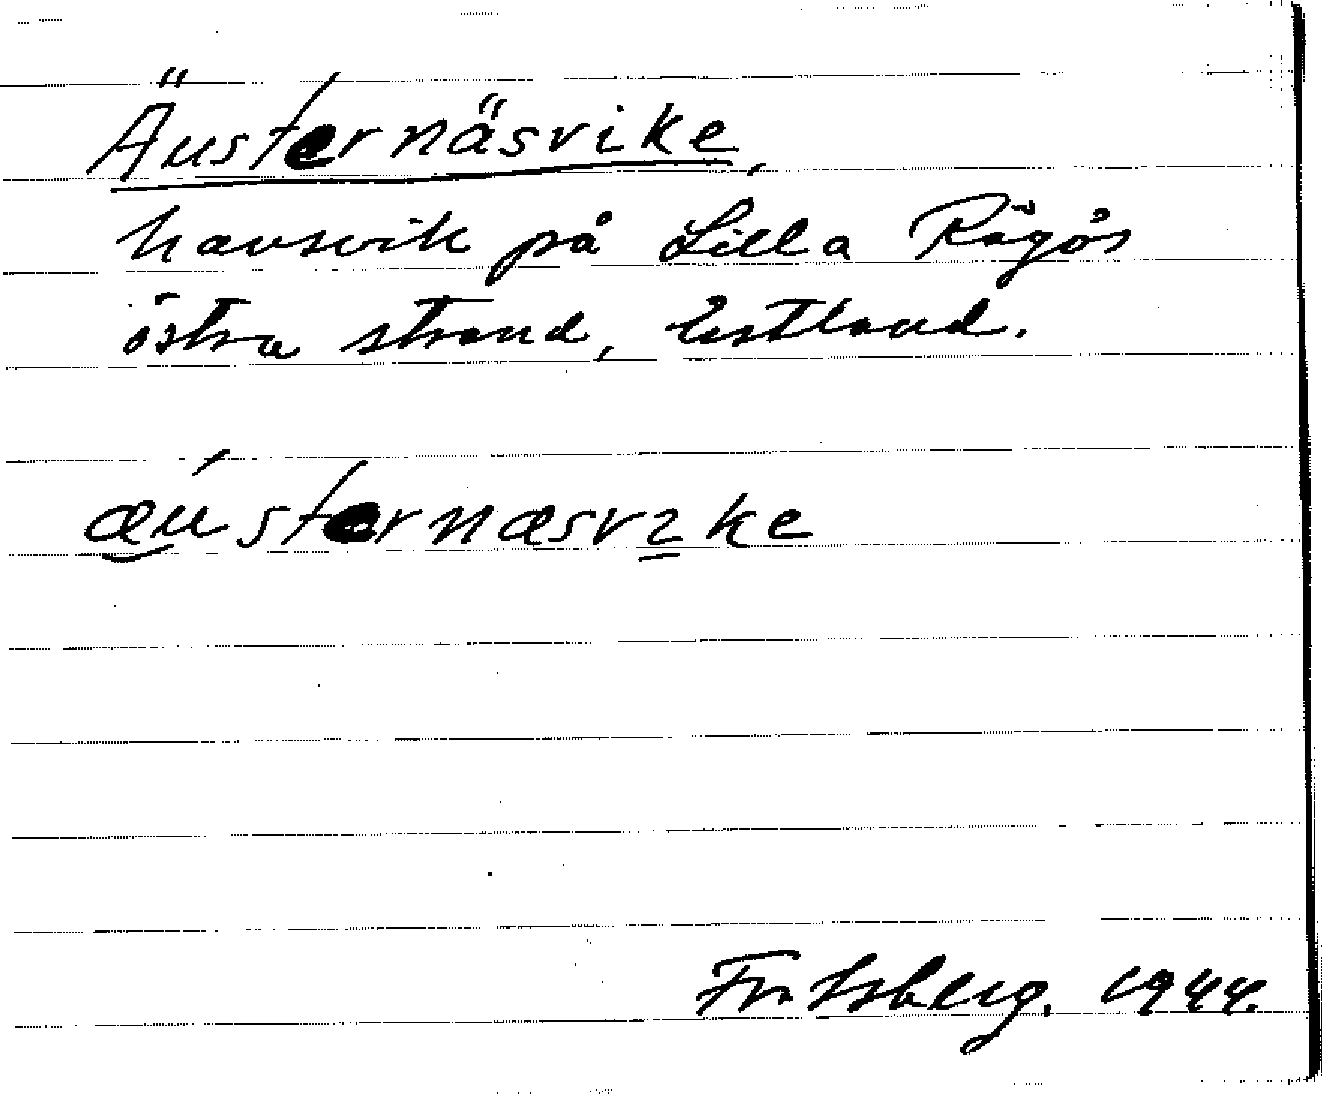 Äusternäsvike,
havsvik på Lilla Rågös
östra strand, Estland.
æústernæsvıke
Fr. Isberg. 1944.